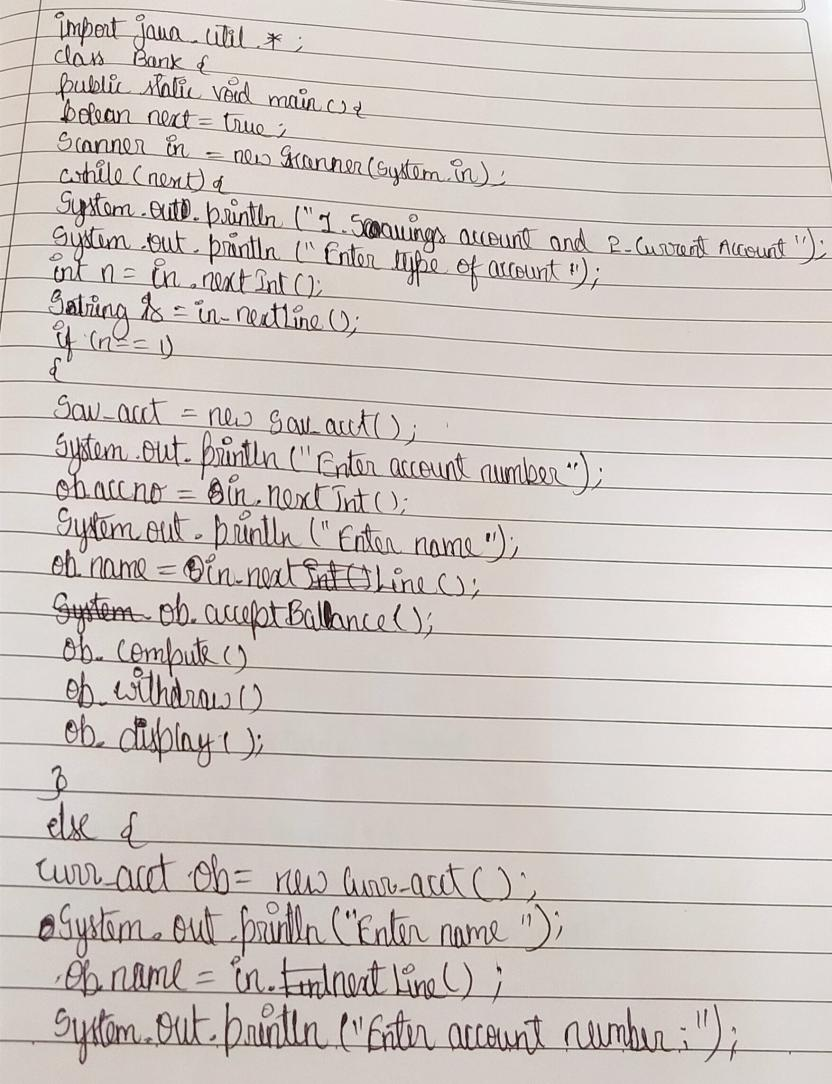 import java.util.*;
class Bank {
public static void main() {
bolean next = true;
Scanner in = new Scanner(System.in);
while (next) {
System.out.println ("1. Savings account and 2. Current Account");
System.out.println ("Enter type of account");
int n = in.nextInt();
String = in.nextLine();
if (n == 1)
{
Sav_acct = new Sav_acct();
System.out.println ("Enter account number");
ob.accno = in.nextInt();
System.out.println ("Enter name");
ob.name = in.nextLine();
ob.acceptBallance();
ob.compute()
ob.withdraw()
ob.display();
}
else {
Curr_acct ob = new Curr_acct();
System.out.println ("Enter name ");
ob.name = in.nextLine();
System.out.println ("Enter account number:");